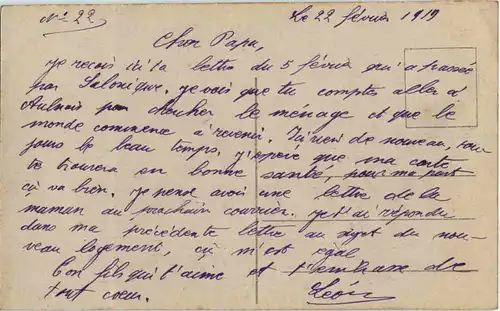 No 22 Le 22 février 1919
Cher Papa,
je reçois ici ta lettre du 5 février qui a passée
par Salonique, je vois que tu comptes aller à
Aulnois pour chercher le ménage et que le
monde commence à revenir. Ici rien de nouveau, tou-
jours le beau temps. j'espère que ma carte
te trouvera en bonne santé, pour ma part
ça va bien. je pense avoir une lettre de la
maman au prochain courrier. je t'ai répondu
dans ma précédente lettre au sujet du nou-
veau logement, ça m'est égal
Ton fils qui t'aime et t'embrasse de
tout coeur. Léon